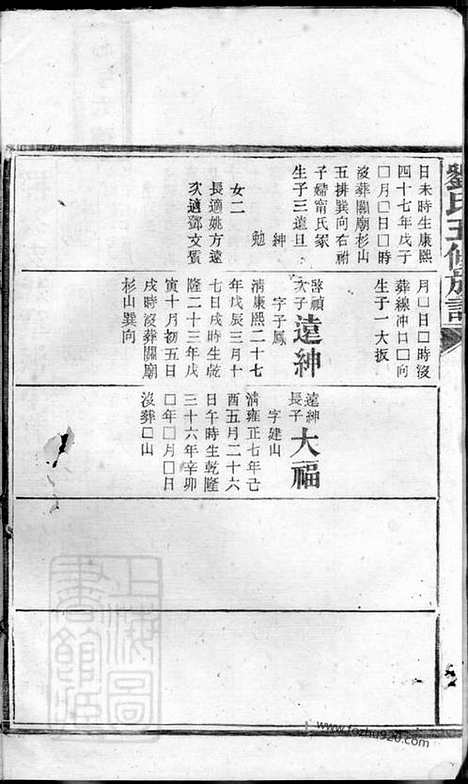 劉氏五修族譜
日未時生康熙
四十七年戊子
□月□日□時
沒葬關廟杉山
五排巽向右祔
子婦甯氏冢
生子三遠旦
紳
勉
女二
長適姚方遠
次適鄧文質
月□日□時沒
葬線沖□□向
生子一大扳
啓禎
次子
遠紳
字子鳳
清康熙二十七
年戊辰三月十
七日戌時生乾
隆二十三年戊
寅十月初五日
戌時沒葬關廟
杉山巽向
遠紳
長子
大福
字建山
清雍正七年己
酉五月二十六
日午時生乾隆
三十六年辛卯
□年□月□日
沒葬□山
上海圖
書館藏
www.fozhu920.com